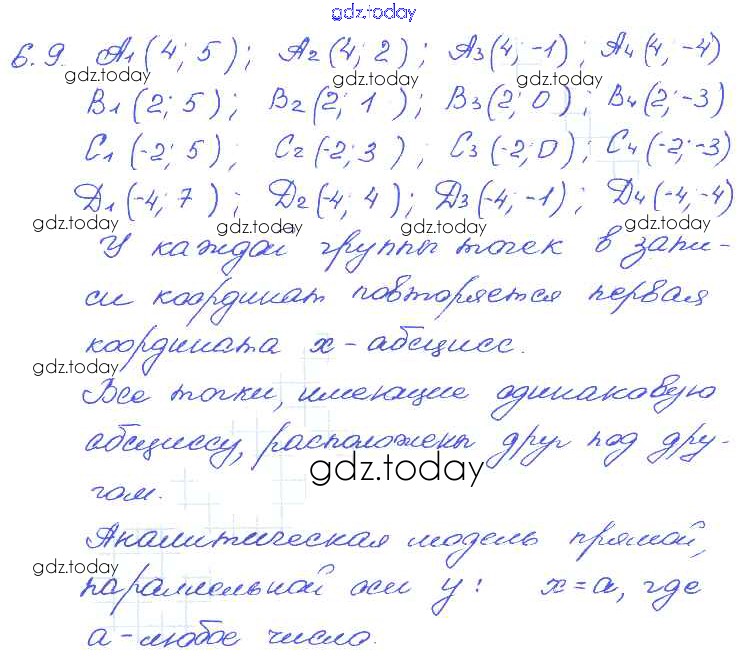 gdz.today
6.9. A1(4; 5); A2(4; 2); A3(4; -1); A4(4, -4)
gdz.today gdz.today gdz.today
B1(2; 5); B2(2; 1); B3(2; 0); B4(2; -3)
C1(-2; 5); C2(-2; 3); C3(-2; 0); C4(-2; -3)
gdz.today gdz.today gdz.today
D1(-4; 7); D2(-4; 4); D3(-4; -1); D4(-4, -4)
gdz.today gdz.today gdz.today
У каждой группы точек в запи-
си координат повторяется первая
координата x - абсцисс.
gdz.today
Все точки, имеющие одинаковую
абсциссу, расположены друг под дру-
gdz.today
гом.
Аналитическая модель прямой,
gdz.today
параллельной оси y: x=a, где
a - любое число.